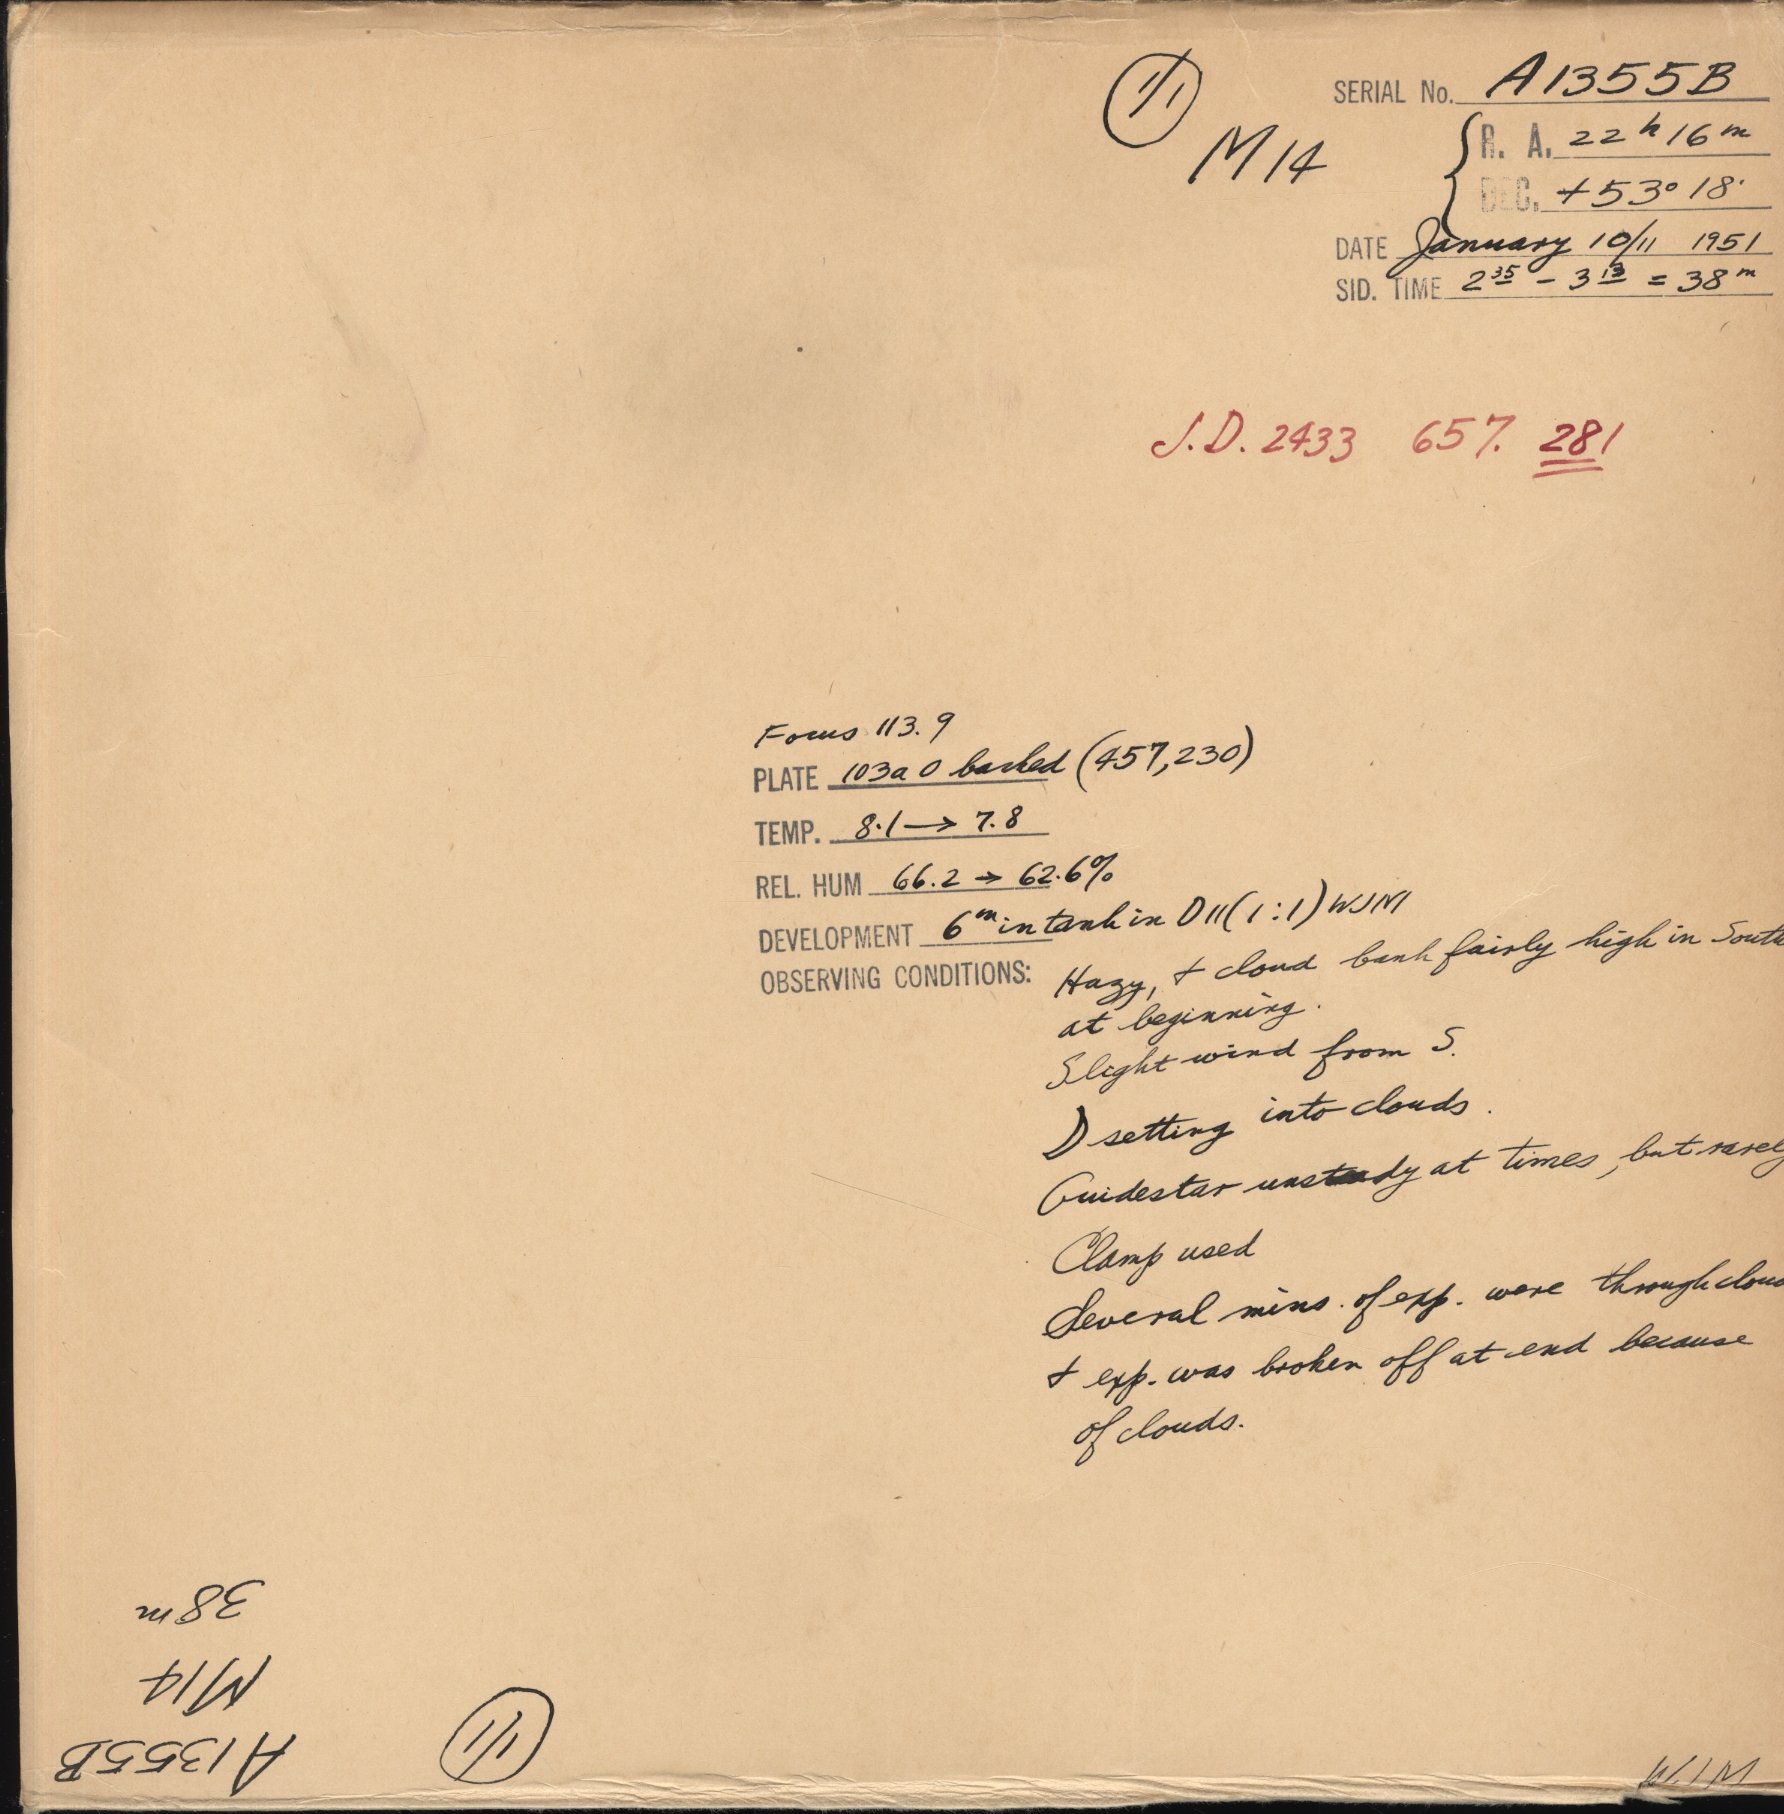 1/1
M 14
SERIAL No. A1355B
R. A. 22h 16m
DEC. +53° 18'
DATE January 10/11 1951
SID. TIME 2 35 - 3 13 = 38m
J.D. 2433 657. 281
Focus 113.9
PLATE 103a O backed (457,230)
TEMP. 8.1 → 7.8
REL. HUM 66.2 → 62.6%
DEVELOPMENT 6m in tank in D11 (1:1) WJM
OBSERVING CONDITIONS: Hazy, + cloud bank fairly high in South
at beginning.
Slight wind from S.
☽ setting into clouds.
Guidestar unsteady at times, but rarely
Clamp used
Several mins. of exp. were through clou
+ exp. was broken off at end because
of clouds.
38m
M14
A1355B
1/1
WJM